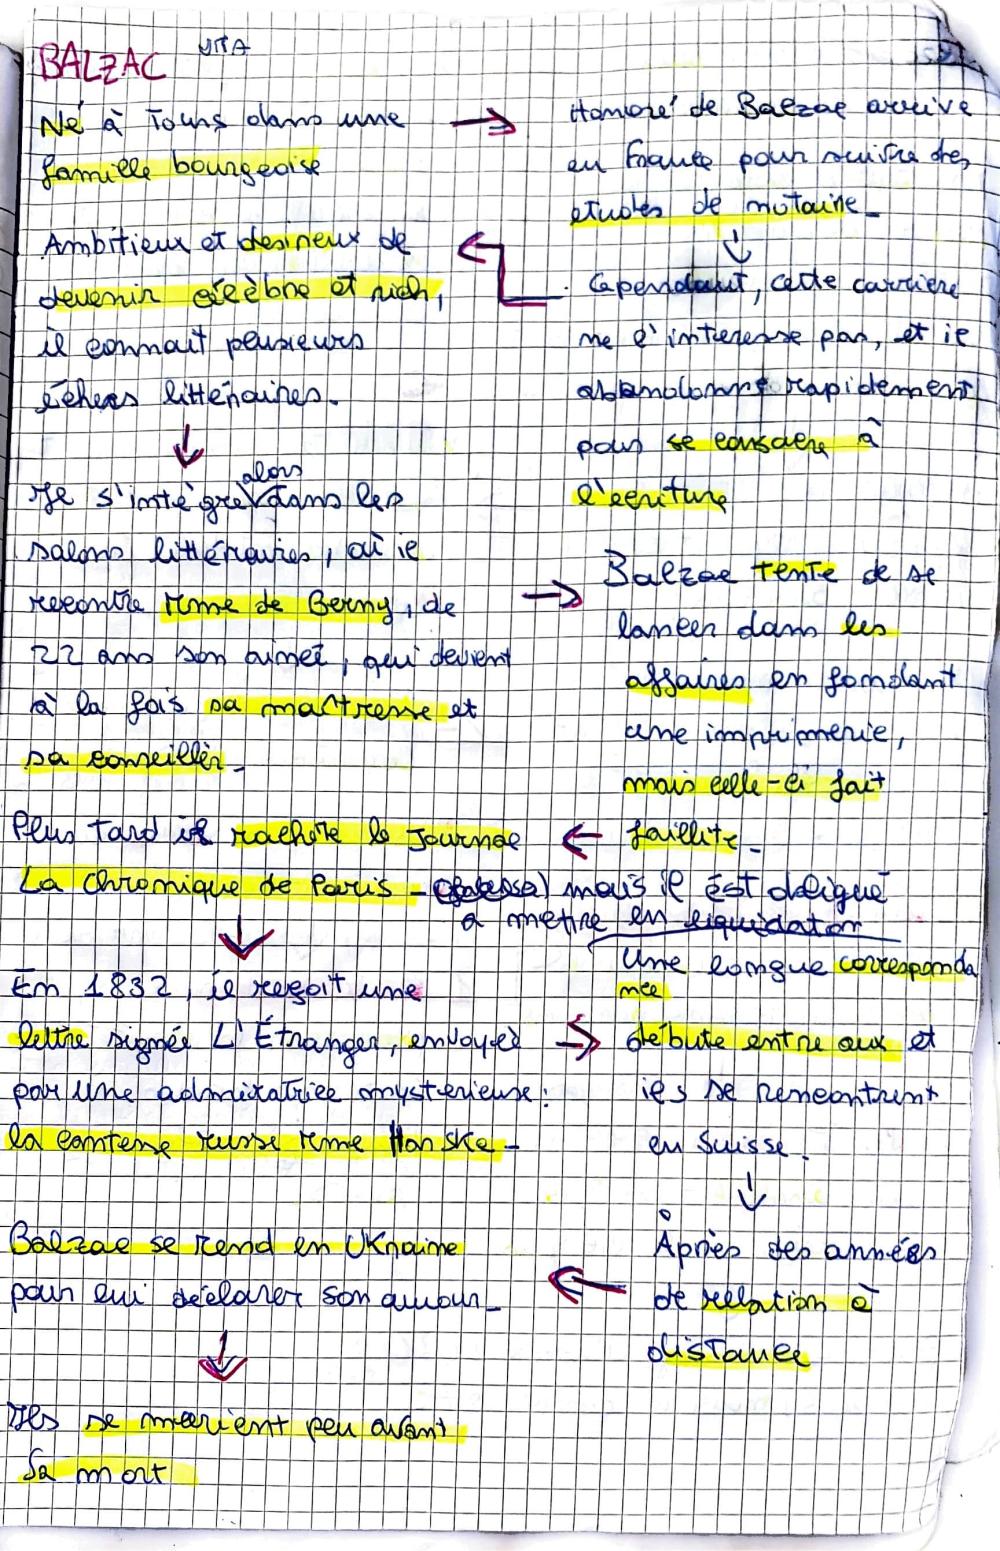 BALZAC VITA
Né à Tours dans une
famille bourgeoise
Honoré de Balzac arrive
en France pour suivre des
etudes de notaire_
Cependant, cette carriere
ne l'interesse pas, et il
abbandonne rapidement
pour se consacre à
l'ecriture
Ambitieux et desireux de
devenir célèbre et rich,
il connait plusieurs
échecs littéraires_
Il s'intègre alors dans les
salons littéraires, où il
recontre Mme de Berny, de
22 ans son aimeé, qui devient
à la fois sa maîtresse et
sa conseillèr_
Balzac tente de se
lancer dans les
affaires en fondant
une imprimerie,
mais celle-ci fait
faillite_
Plus tard il rachète le Journal
La Chronique de Paris - mais il est obligué
a metire en liquidation
En 1832, il reçoit une
lettre signée L'Étranger, envoyed
par une admiratrice mysterieuse:
la contesse russe Mme Hanska_
Une longue corresponda
nce
débute entre aux et
ils se rencontrent
en Suisse.
Après des années
de rellation à
distance
Balzac se rend en UKraine
pour lui déclarer son amour_
Ils se marient peu avant
Sa mort